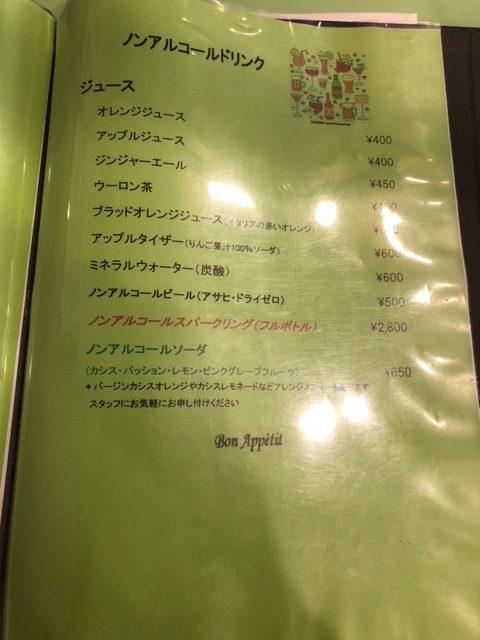 ノンアルコールドリンク
ジュース
オレンジジュース ¥400
アップルジュース ¥400
ジンジャーエール ¥450
ウーロン茶 ¥400
ブラッドオレンジジュース(イタリアの赤いオレンジ)
アップルタイザー(りんご果汁100%ソーダ) ¥600
ミネラルウォーター(炭酸) ¥600
ノンアルコールビール(アサヒ・ドライゼロ) ¥500
ノンアルコールスパークリング(フルボトル) ¥2,800
ノンアルコールソーダ
(カシス・パッション・レモン・ピンクグレープフルーツ) ¥650
*バージンカシスオレンジやカシスレモネードなどアレンジメニューもあります
スタッフにお気軽にお申し付けください
Bon Appétit